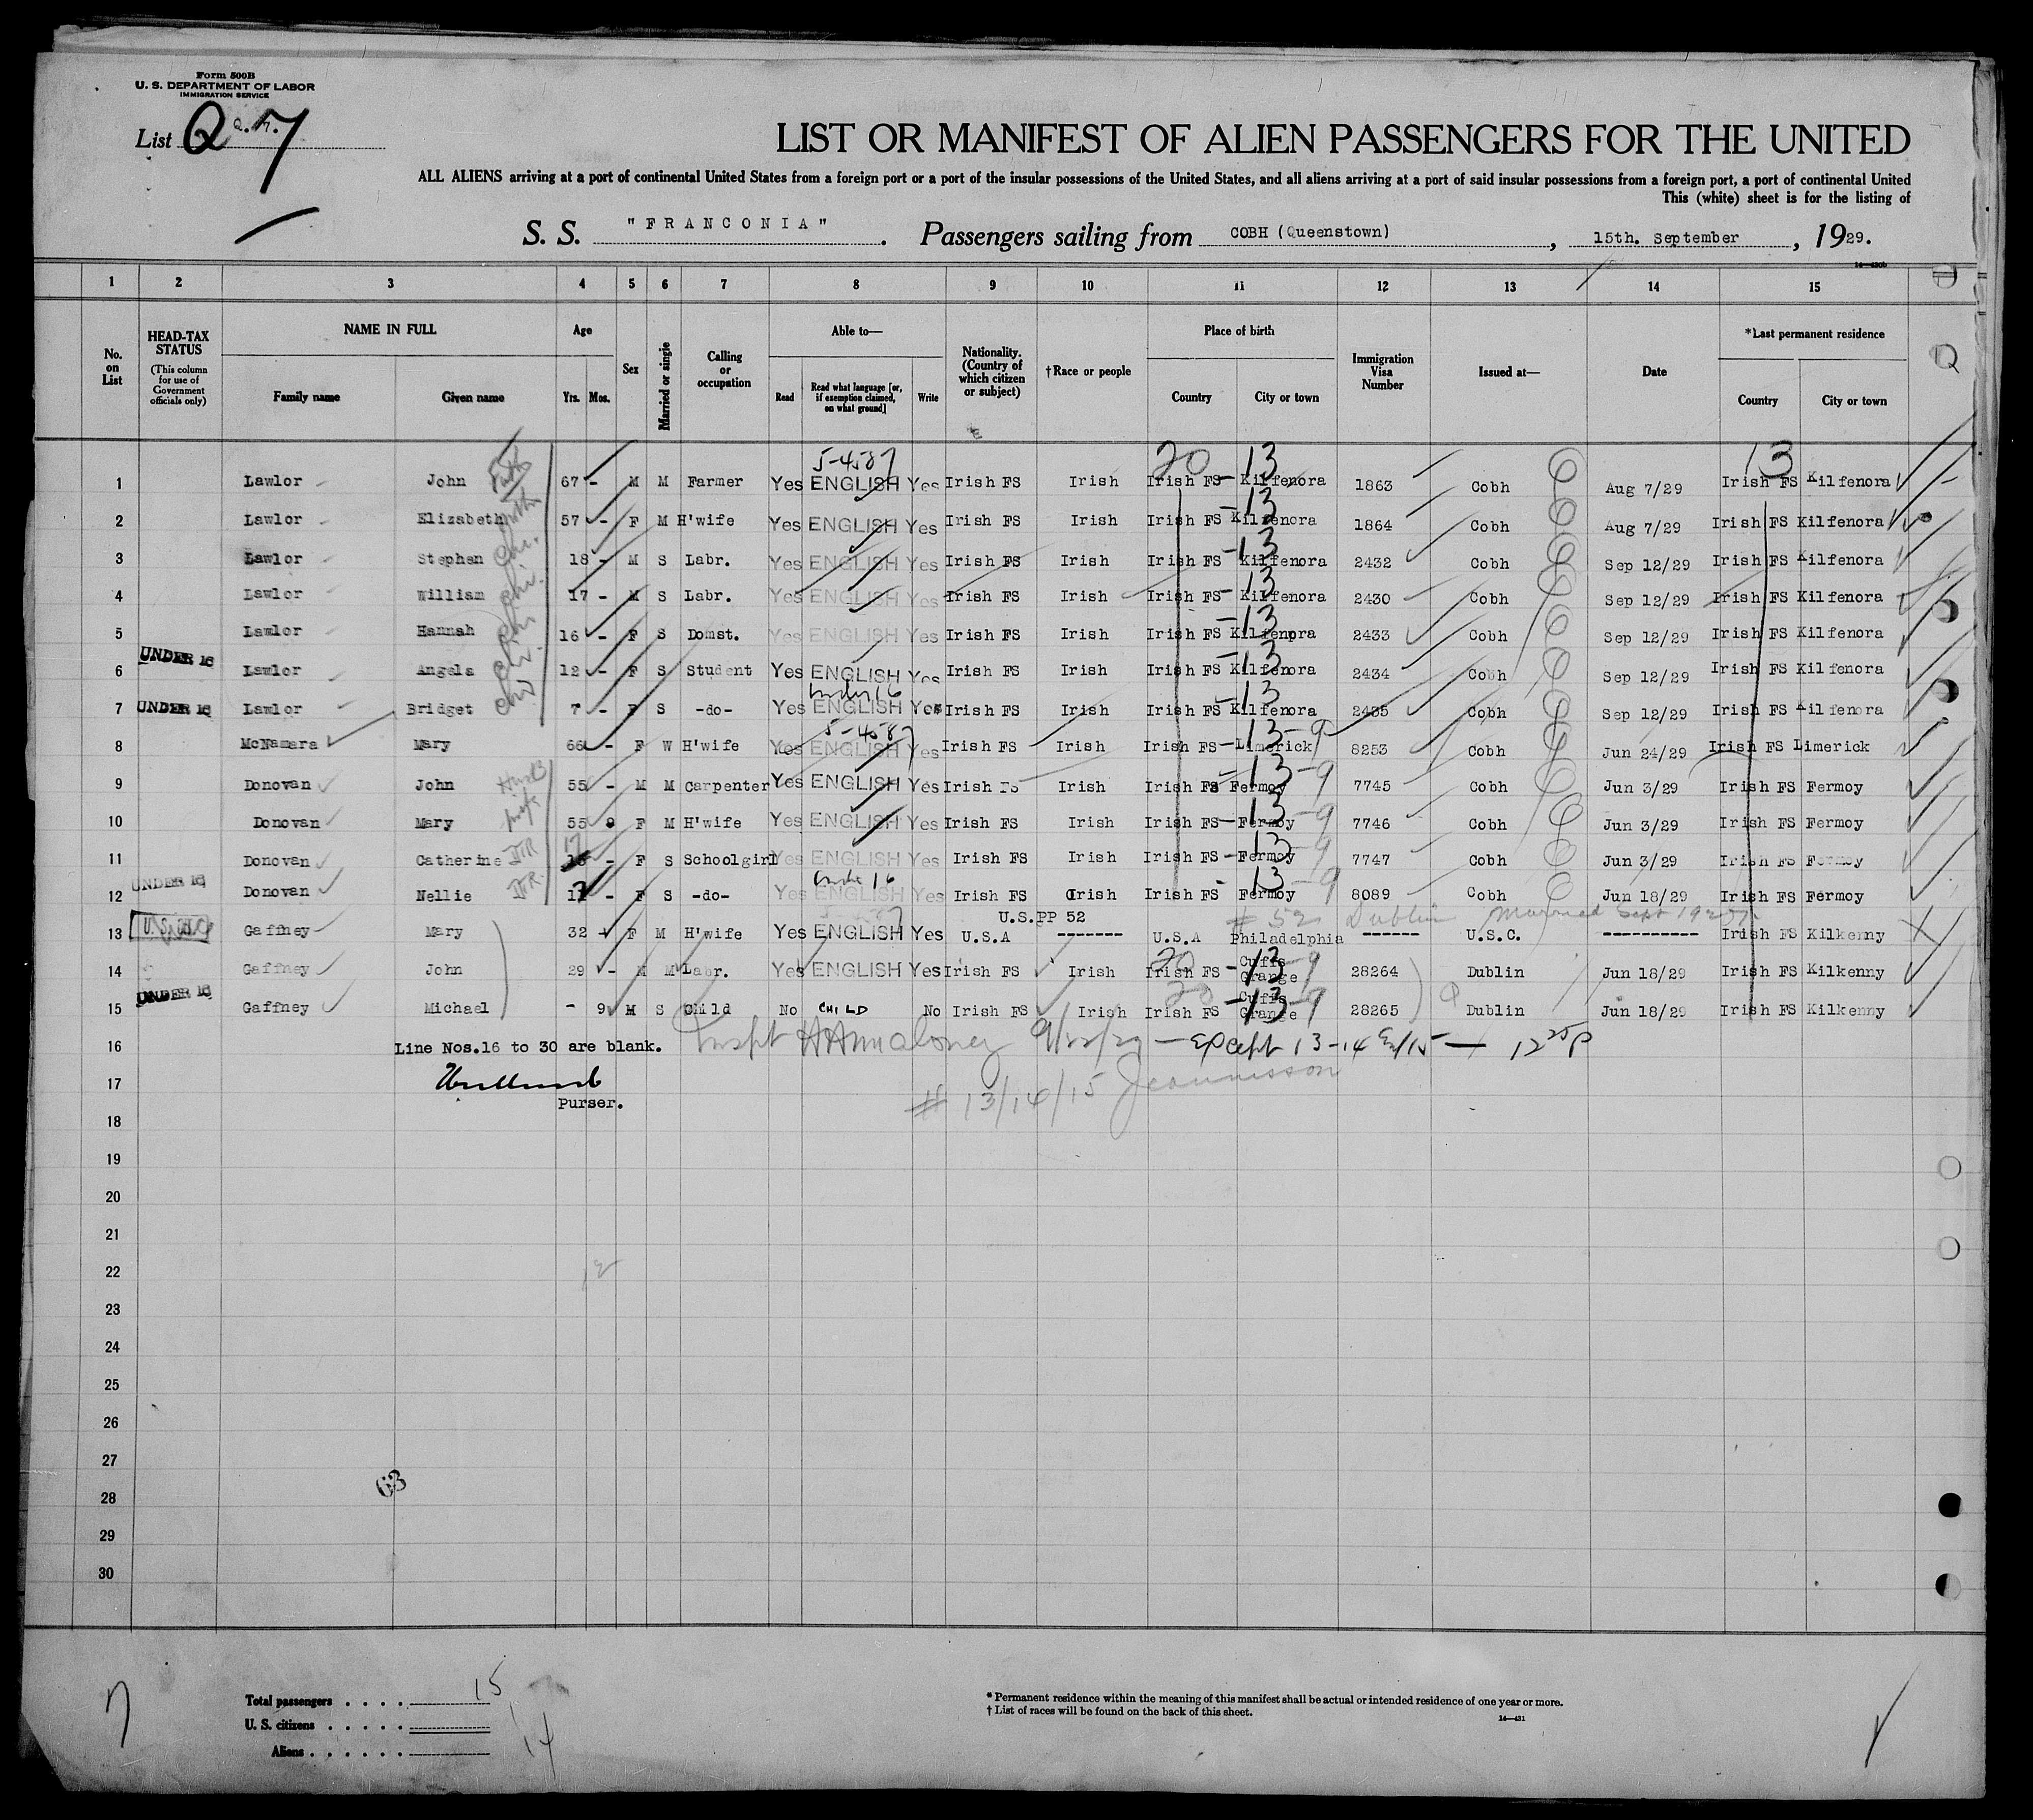 Form 500B
U. S. DEPARTMENT OF LABOR
IMMIGRATION SERVICE
List Q. 7.
Q 7
LIST OR MANIFEST OF ALIEN PASSENGERS FOR THE UNITED
ALL ALIENS arriving at a port of continental United States from a foreign port or a port of the insular possessions of the United States, and all aliens arriving at a port of said insular possessions from a foreign port, a port of continental United
This (white) sheet is for the listing of
S. S. "FRANCONIA". Passengers sailing from COBH (Queenstown), 15th. September, 1929.
1 2 3 4 5 6 7 8 9 10 11 12 13 14 15
No. on List
HEAD-TAX STATUS (This column for use of Government officials only)
NAME IN FULL Family name Given name
Age Yrs. Mos.
Sex
Married or single
Calling or occupation
Able to— Read Read what language [or, if exemption claimed, on what ground] Write
Nationality. (Country of which citizen or subject)
†Race or people
Place of birth Country City or town
Immigration Visa Number
Issued at—
Date
*Last permanent residence Country City or town
5-4587 20 13 13
1 Lawlor John 67 - M M Farmer Yes ENGLISH Yes Irish FS Irish Irish FS Kilfenora 1863 Cobh Aug 7/29 Irish FS Kilfenora
13
2 Lawlor Elizabeth 57 - F M H'wife Yes ENGLISH Yes Irish FS Irish Irish FS Kilfenora 1864 Cobh Aug 7/29 Irish FS Kilfenora
13
3 Lawlor Stephen Chi. 18 - M S Labr. Yes ENGLISH Yes Irish FS Irish Irish FS Kilfenora 2432 Cobh Sep 12/29 Irish FS Kilfenora
13
4 Lawlor William Chi. 17 - M S Labr. Yes ENGLISH Yes Irish FS Irish Irish FS Kilfenora 2430 Cobh Sep 12/29 Irish FS Kilfenora
13
5 Lawlor Hannah Chi 16 - F S Domst. Yes ENGLISH Yes Irish FS Irish Irish FS Kilfenora 2433 Cobh Sep 12/29 Irish FS Kilfenora
UNDER 16 13
6 Lawlor Angela Chi. 12 - F S Student Yes ENGLISH Yes Irish FS Irish Irish FS Kilfenora 2434 Cobh Sep 12/29 Irish FS Kilfenora
under 16 13
7 UNDER 16 Lawlor Bridget Chi 7 - F S -do- Yes ENGLISH Yes Irish FS Irish Irish FS Kilfenora 2435 Cobh Sep 12/29 Irish FS Kilfenora
5-4587 13-9
8 McNamara Mary 66 - F W H'wife Yes ENGLISH Yes Irish FS Irish Irish FS Limerick 8253 Cobh Jun 24/29 Irish FS Limerick
13-9
9 Donovan John Husb 55 - M M Carpenter Yes ENGLISH Yes Irish FS Irish Irish FS Fermoy 7745 Cobh Jun 3/29 Irish FS Fermoy
13-9
10 Donovan Mary wife 55 9 F M H'wife Yes ENGLISH Yes Irish FS Irish Irish FS Fermoy 7746 Cobh Jun 3/29 Irish FS Fermoy
17 13-9
11 Donovan Catherine DTR - F S Schoolgirl Yes ENGLISH Yes Irish FS Irish Irish FS Fermoy 7747 Cobh Jun 3/29 Irish FS Fermoy
UNDER 16 under 16 13-9
12 Donovan Nellie DTR. F S -do- Yes ENGLISH Yes Irish FS Irish Irish FS Fermoy 8089 Cobh Jun 18/29 Irish FS Fermoy
U.S.PP 52 # 52 Dublin Married Sept 1927
13 Gaffney Mary 32 F M H'wife Yes ENGLISH Yes U.S.A ------- U.S.A Philadelphia ------ U.S.C. ---------- Irish FS Kilkenny
20 13-9
14 Gaffney John 29 - M M Labr. Yes ENGLISH Yes Irish FS Irish Irish FS Cuffs Grange 28264 Dublin Jun 18/29 Irish FS Kilkenny
UNDER 16 20 13-9
15 Gaffney Michael - 9 M S Child No CHILD No Irish FS Irish Irish FS Cuffs Grange 28265 Dublin Jun 18/29 Irish FS Kilkenny
16 Line Nos.16 to 30 are blank. Inspt HAMaloney 9/22/29 — Except 13-14 & 15 — 12 25 P
17
# 13/14/15
Purser.
18
19
20
21
22
23
24
25
26
27
63
28
29
30
Total passengers . . . . 15
U. S. citizens . . . . . 1
Aliens . . . . . . 14
7
* Permanent residence within the meaning of this manifest shall be actual or intended residence of one year or more.
† List of races will be found on the back of this sheet.
14—431